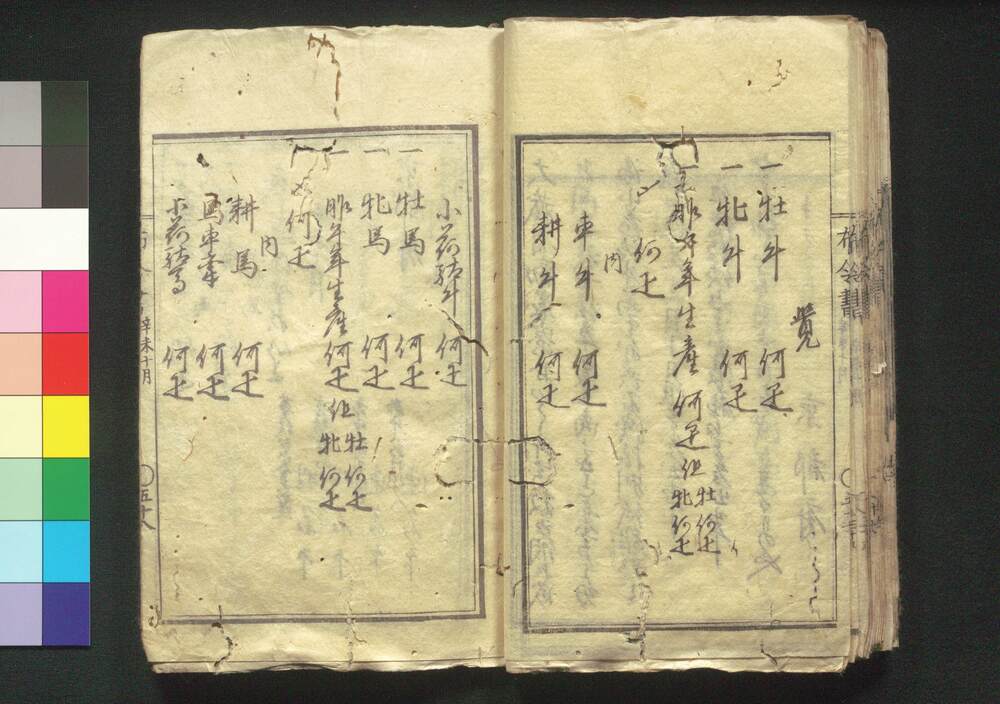 覚
一 牡牛 何疋
一 牝牛 何疋
一 昨午年生産 何疋 但 牡何疋 牝何疋
何疋
内
車牛 何疋
耕牛 何疋
小荷駄牛 何疋
一 牡馬 何疋
一 牝馬 何疋
一 昨午年生産 何疋 但 牡何疋 牝何疋
〆何疋
内
耕馬 何疋
馬車牽 何疋
小荷駄馬 何疋
辛未十月
五十八